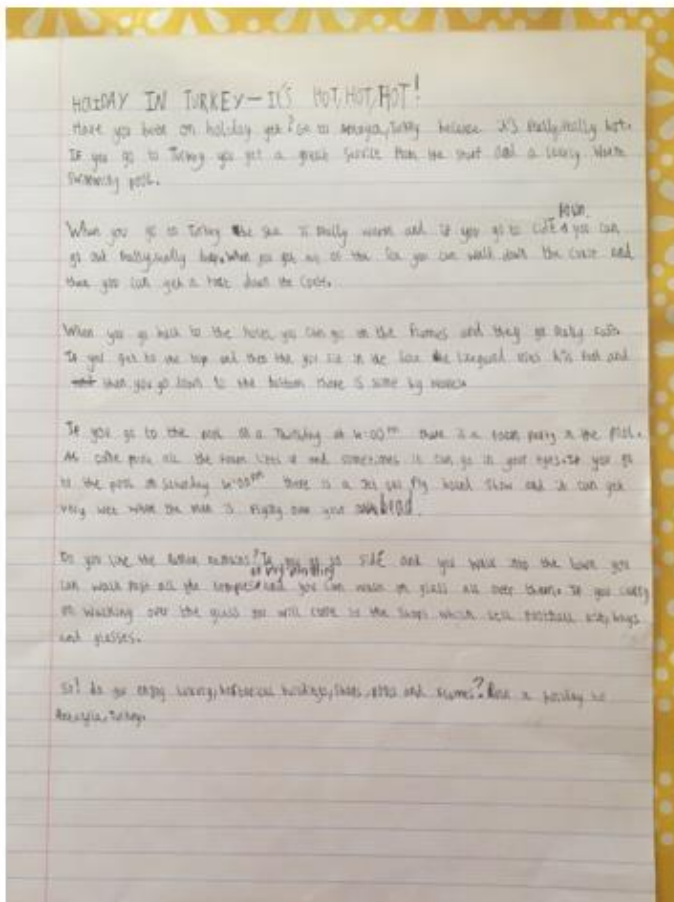 HOLIDAY IN TURKEY - It'S HOT, HOT, HOT!
Have you been on holiday yet? Go to Turkey because it's Really, Really hot.
IF you go to Turkey you get a great Service from the start and a luxury warm
Swimming pool.
Town
When you go to Turkey the sea is Really warm and if you go to SIDE you can
go out Really, really deep. When you get out of the Sea you can walk down the and
then you can get a down the
When you go back to the hotel you can go on the and they go Really
If you get to the top and then the you sit in the the uses his foot and
then you go down to the bottom there is some big
If you go to the pool on a Thursday at 4:00pm there is a foam party in the Pool.
At all the foam and sometimes it can go in your eyes. If you go
to the pool on Saturday 4:00pm there is a Jet fly board Show and it can get
very wet when the man is flying over your head.
Do you like the Roman Remains? If you go to SIDE and you walk the town you
can walk past all the and you can walk on glass all over them. If you carry
on walking over the glass you will come to the Shops which sell football kits, bags
and glasses.
So! do you enjoy luxury, historical buildings, Shops, and ? Book a holiday to
Turkey.